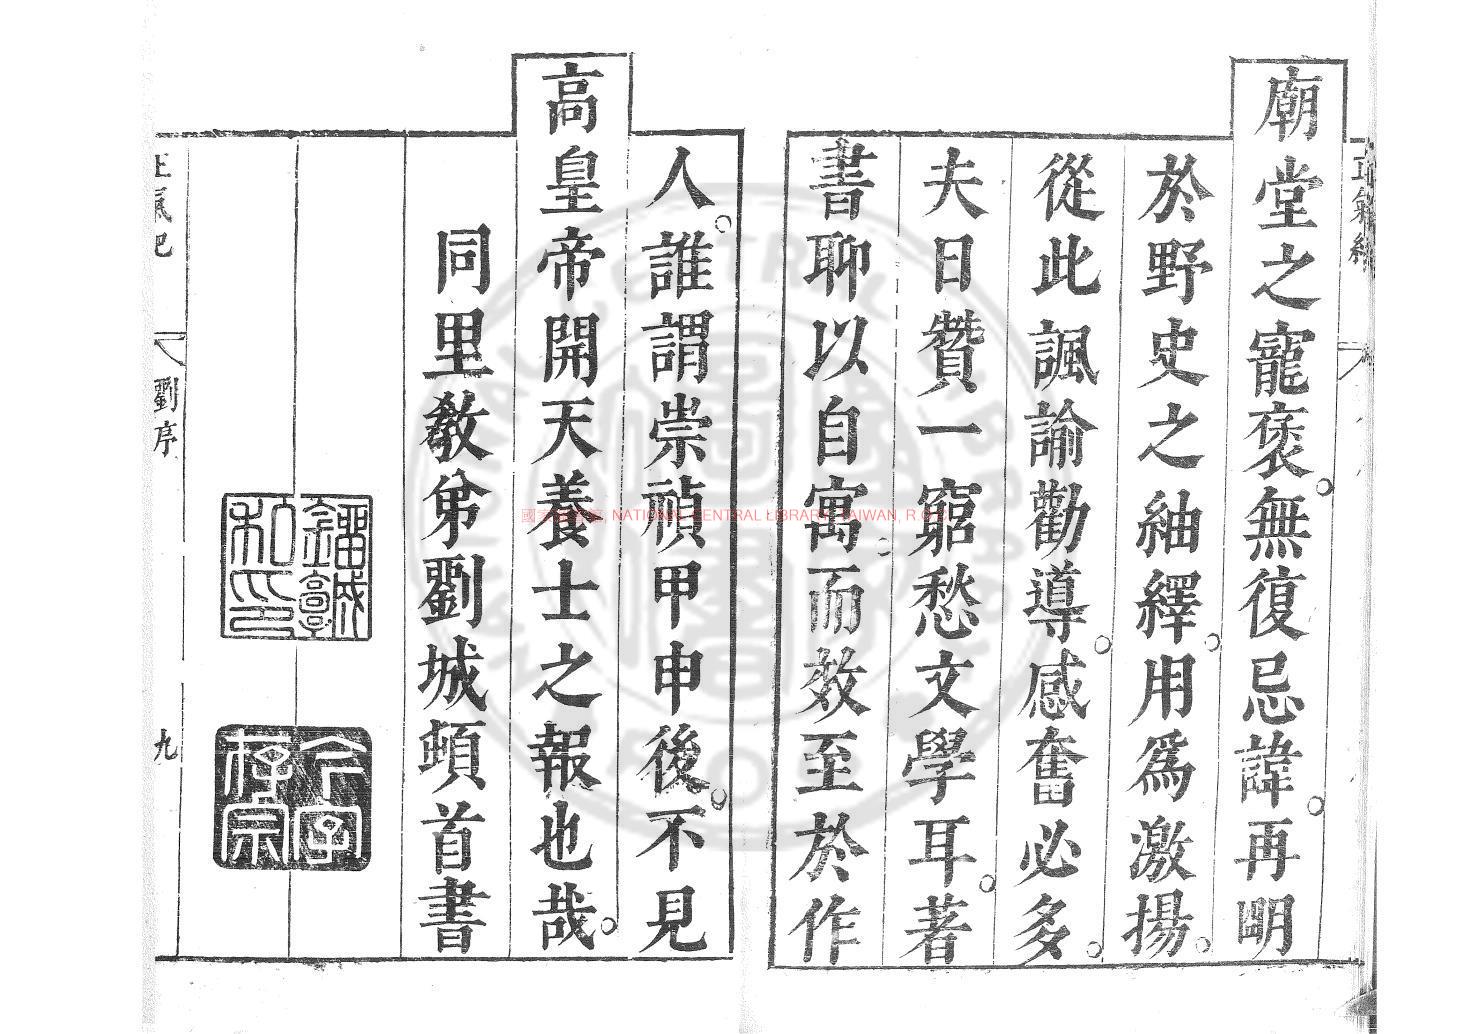 廟堂之寵褒無復忌諱再明
於野史之紬繹用爲激揚
從此諷諭勸導感奮必多
夫日贊一窮愁文學耳著
書聊以自寓而效至於作
人誰謂崇禎甲申後不見
高皇帝開天養士之報也哉
同里教弟劉城頓首書
劉序
九
國家圖書館 NATIONAL CENTRAL LIBRARY, TAIWAN, R.O.C